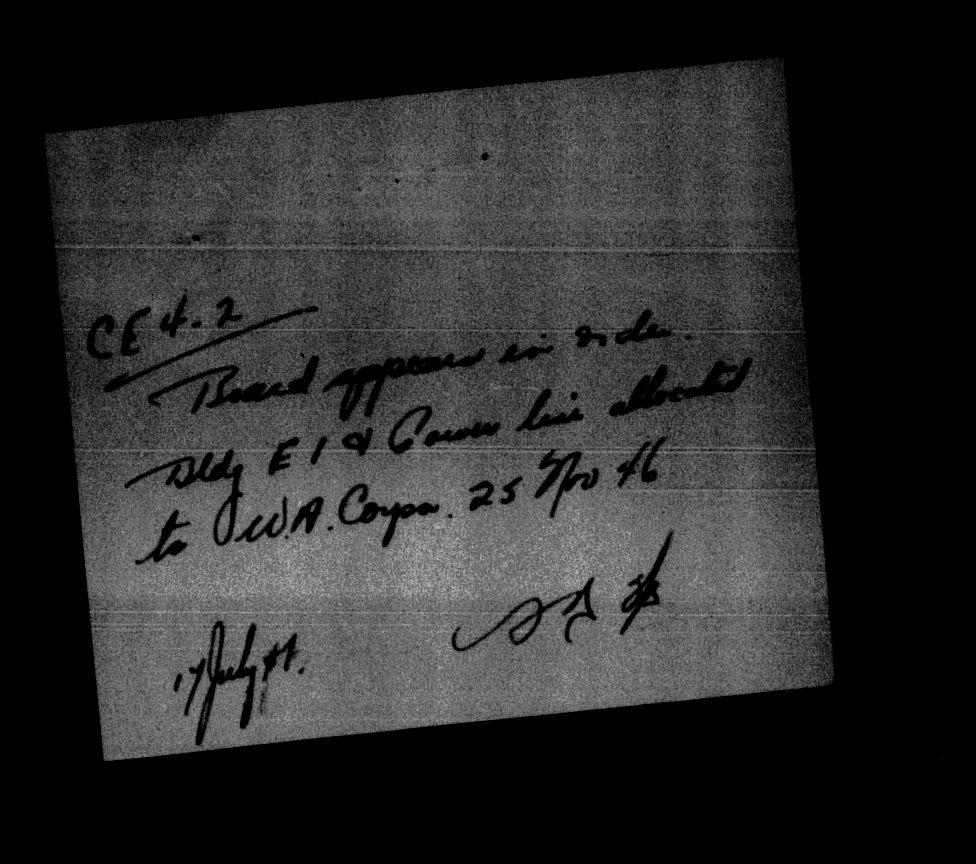 CE 4-2
Board appears in order.
Bldg E 1 & Power line allocated
to W.A. Corps. 25 Nov 46
17 July